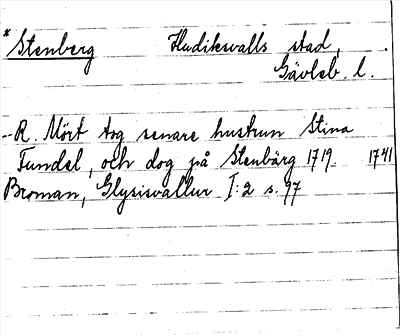 * Stenberg Hudiksvalls stad,
Gävleb. l.
-- R. Mört tog senare hustrun Stina
Fundel, och dog på Stenbärg 1719. 1741
Broman, Glysisvallur I:2 s. 97